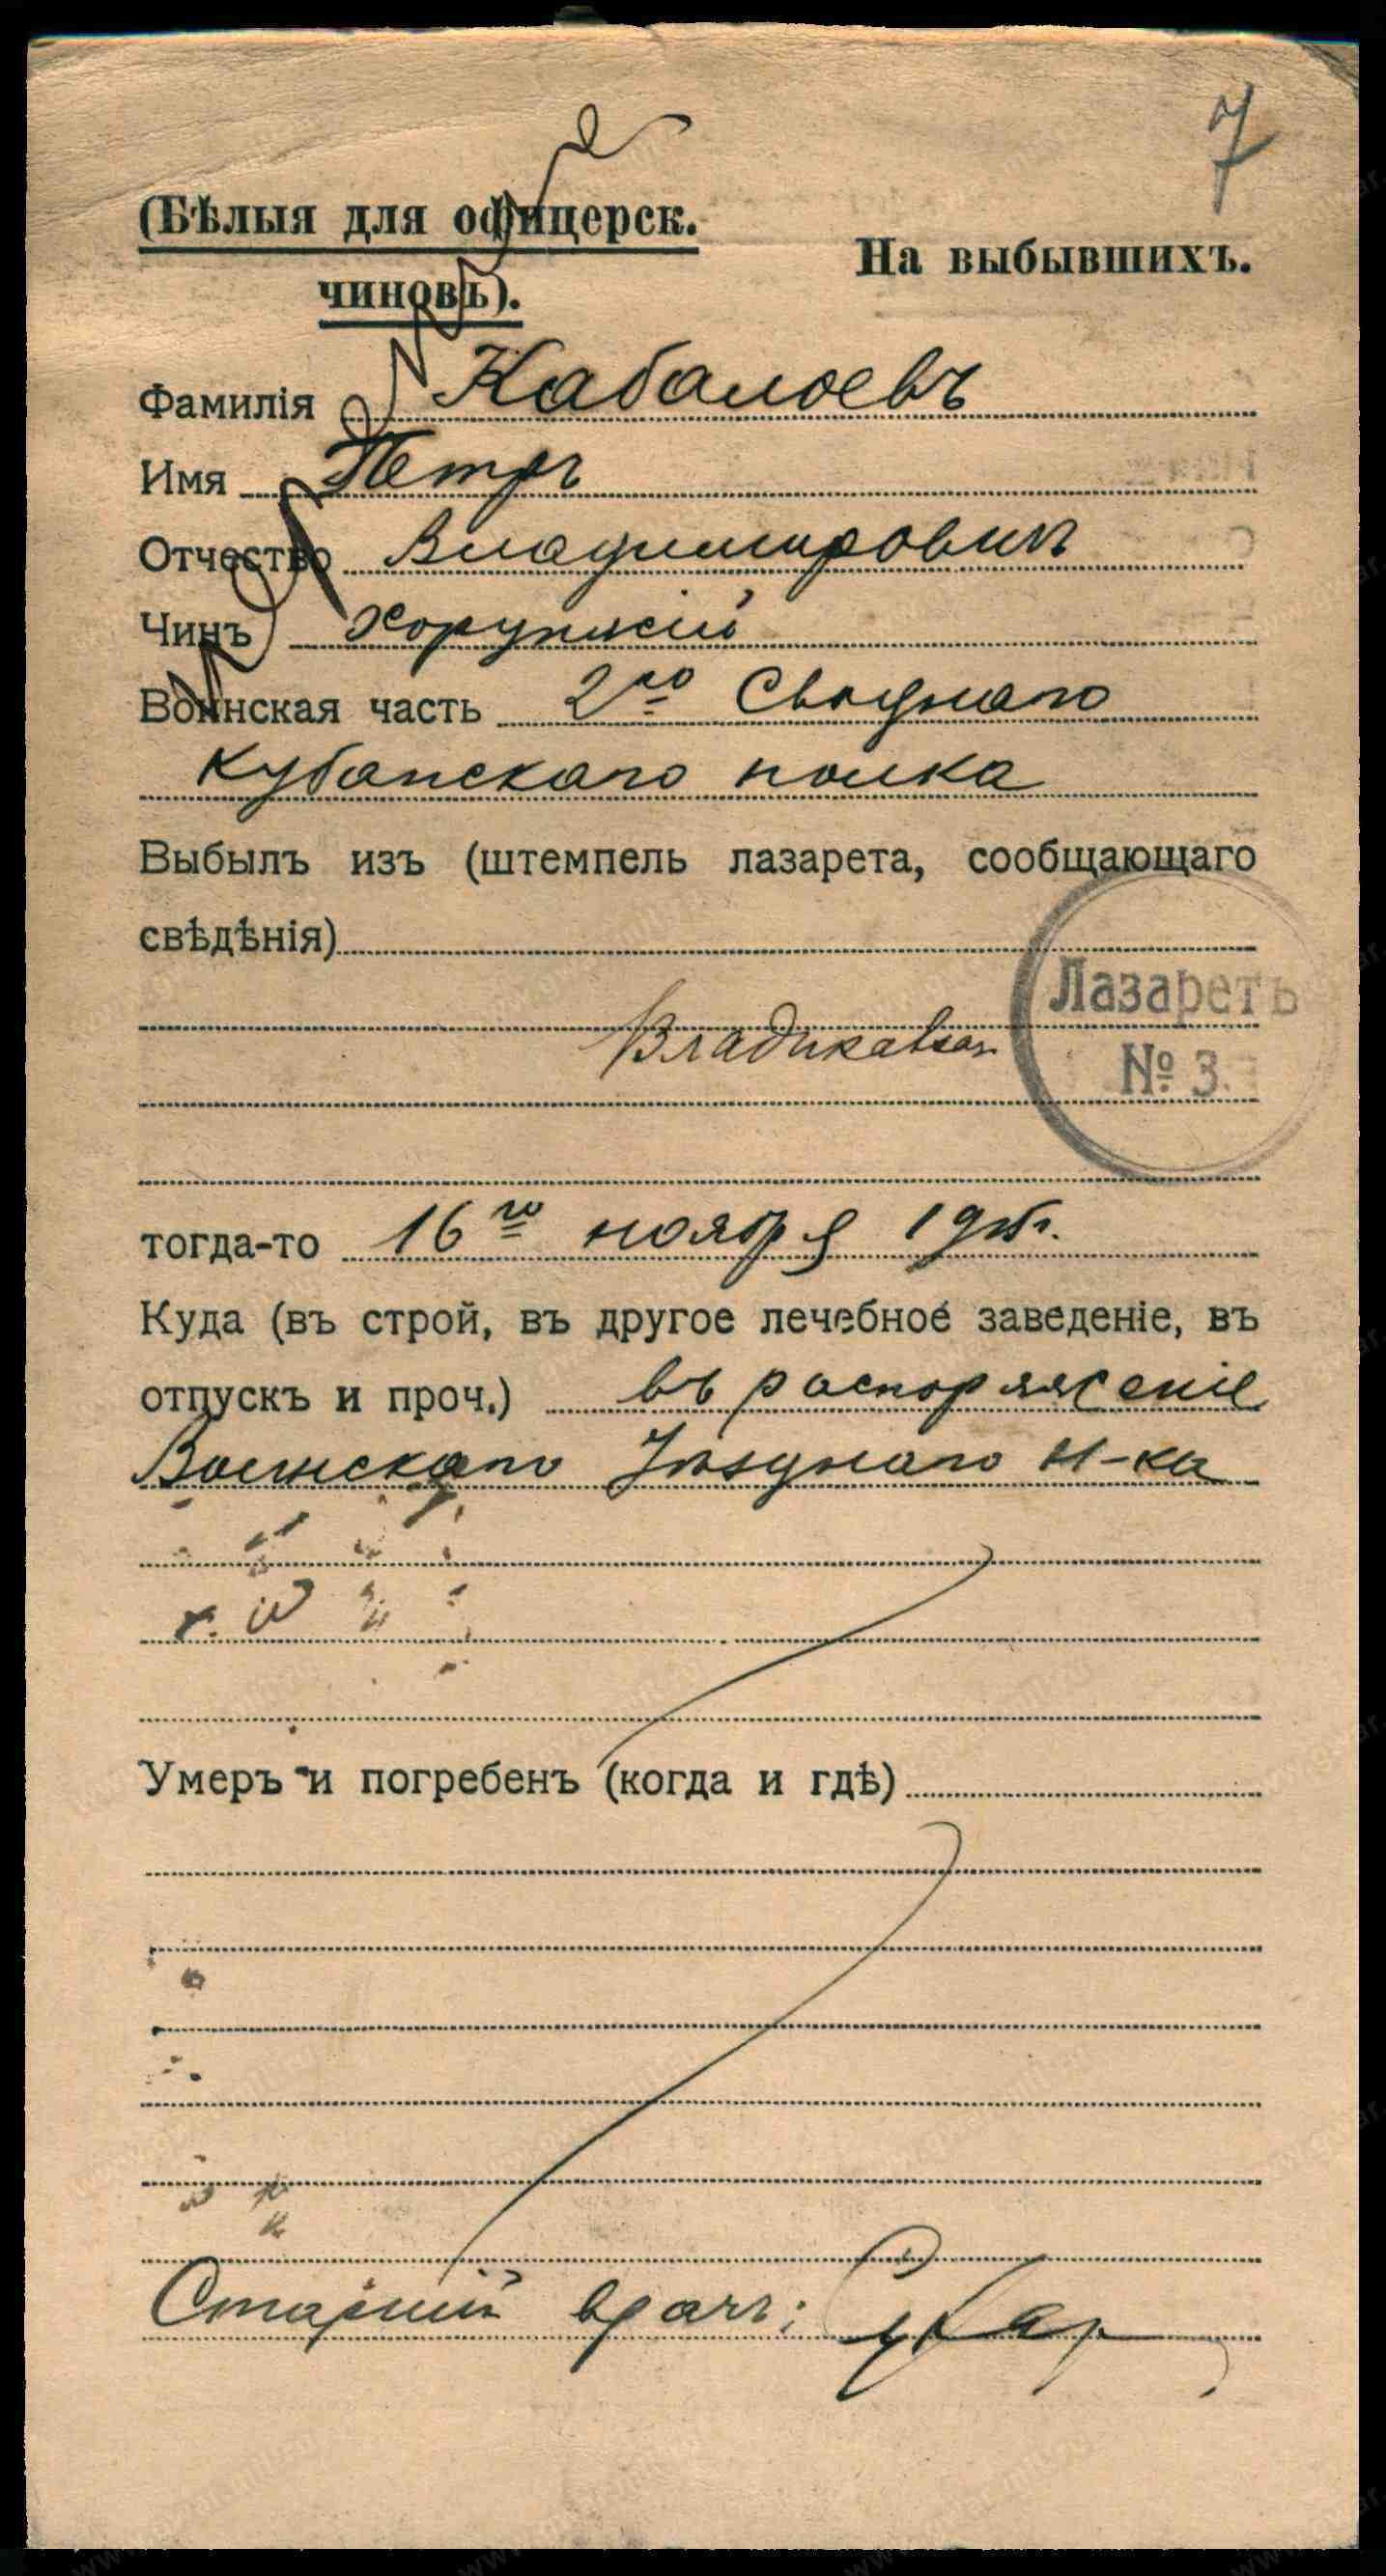 7
(Бѣлыя для офицерск.
чиновъ).
На выбывшихъ.
Фамилія Кабалоевъ
Имя Петръ
Отчество Владимировичъ
Чинъ хорунжій
Воинская часть 2го Своднаго
Кубанскаго полка
Выбылъ изъ (штемпель лазарета, сообщающаго
свѣдѣнія)
Лазаретъ
Владикавказ
№ 3.
тогда-то 16го ноября 1915г.
Куда (въ строй, въ другое лечебное заведеніе, въ
отпускъ и проч.) въ распоряженіе
Воинскаго Уѣзднаго Н-ка
Умеръ и погребенъ (когда и гдѣ)
Старшій врачъ: